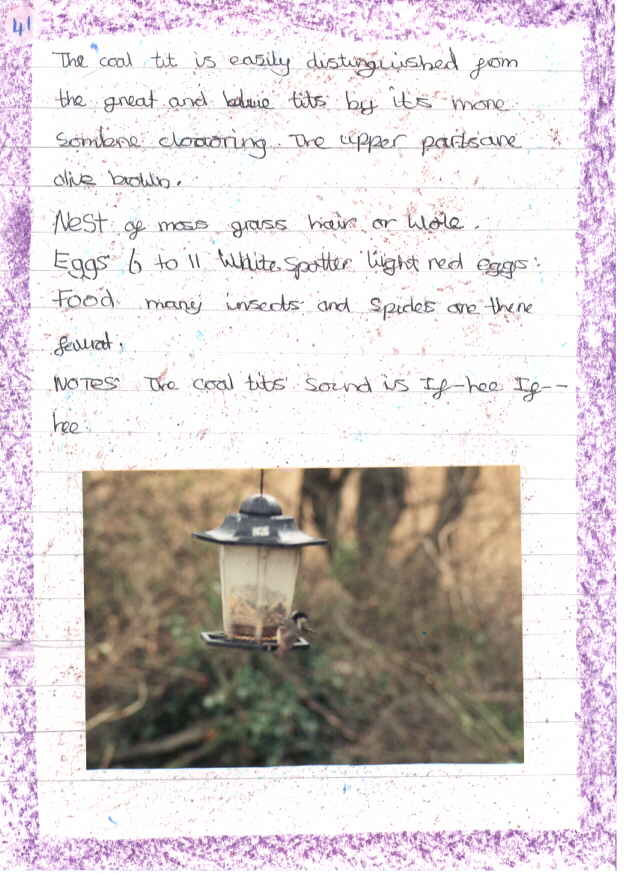 41
The coal tit is easily distinguished from
the great and blue tits by it's more
sombre clowring. The upper parts are
olive brown.
Nest of moss grass hair or Wole.
Eggs 6 to 11 White spotter light red eggs.
Food many insects and Spides are there
NOTES The coal tits' sound is If-hee If--
hee.